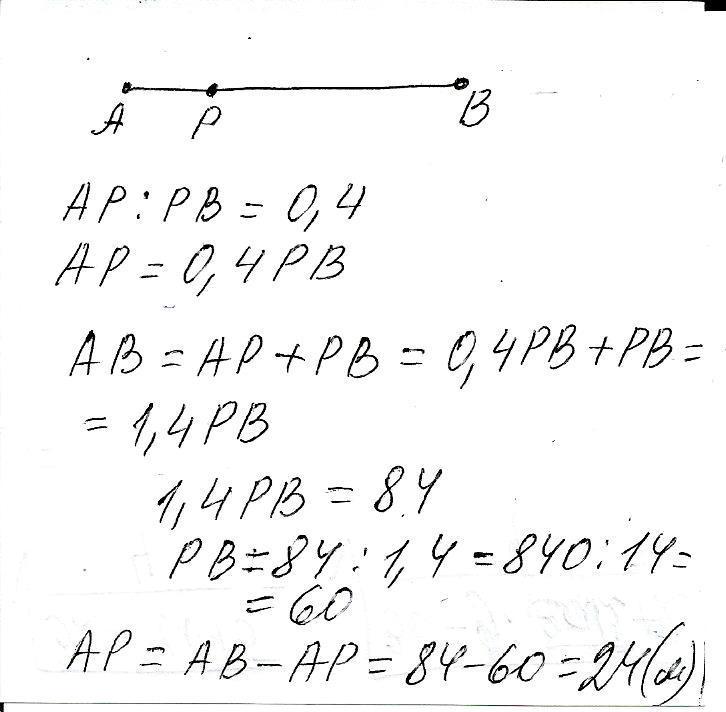 A P B
AP : PB = 0,4
AP = 0,4PB
AB = AP + PB = 0,4PB + PB =
= 1,4PB
1,4PB = 84
PB = 84 : 1,4 = 840 : 14 =
= 60
AP = AB - AP = 84 - 60 = 24(м)